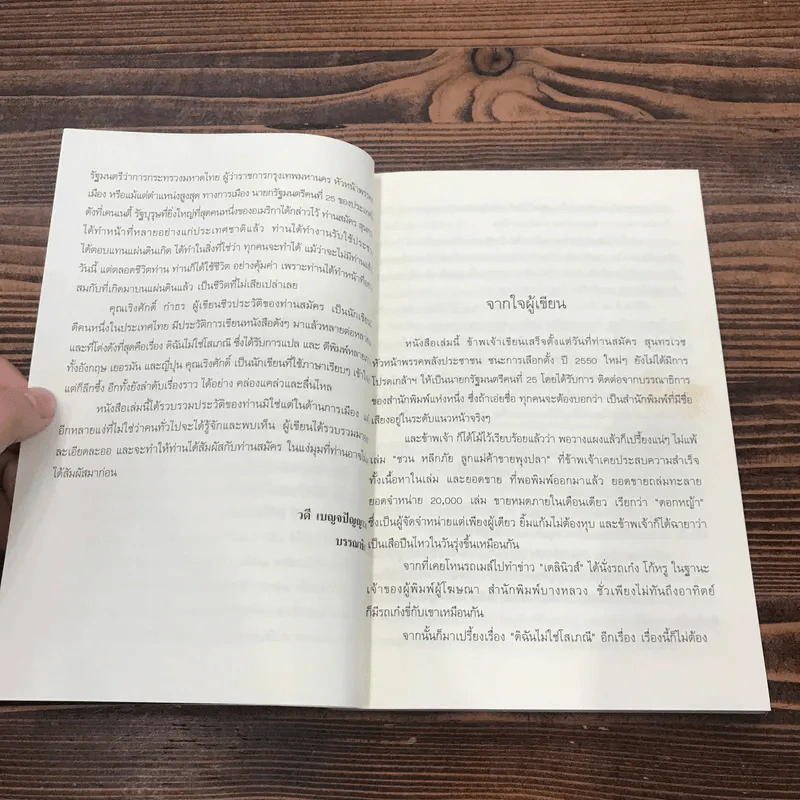 รัฐมนตรีว่าการกระทรวงมหาดไทย ผู้ว่าราชการกรุงเทพมหานคร หัวหน้าพรรค
เมือง หรือแม้แต่ตำแหน่งสูงสุด ทางการเมือง นายกรัฐมนตรีคนที่ 25 ของประเทศ
ดังที่เคนเนดี้ รัฐบุรุษที่ยิ่งใหญ่ที่สุดคนหนึ่งของอเมริกาได้กล่าวไว้ ท่านสมัคร
ได้ทำหน้าที่หลายอย่างแก่ประเทศชาติแล้ว ท่านได้ทำงานรับใช้
ได้ตอบแทนแผ่นดินเกิด ได้ทำในสิ่งที่ใช่ว่า ทุกคนจะทำได้ แม้ว่าจะไม่มีท่าน
วันนี้ แต่ตลอดชีวิตท่าน ท่านก็ได้ใช้ชีวิต อย่างคุ้มค่า เพราะท่านได้ทำหน้าที่
สมกับที่เกิดมาบนแผ่นดินแล้ว เป็นชีวิตที่ไม่เสียเปล่าเลย
คุณเริงศักดิ์ กำธร ผู้เขียนชีวประวัติของท่านสมัคร เป็น
ดีคนหนึ่งในประเทศไทย มีประวัติการเขียนหนังสือดังๆ มาแล้วหลายต่อหลาย
และที่โด่งดังที่สุดคือเรื่อง ดิฉันไม่ใช่โสเภณี ซึ่งได้รับการแปล และ ตีพิมพ์
ทั้งอังกฤษ เยอรมัน และญี่ปุ่น คุณเริงศักดิ์ เป็นนักเขียนที่ใช้ภาษาเรียบๆ
แต่ก็ลึกซึ้ง อีกทั้งยังลำดับเรื่องราว ได้อย่าง คล่องแคล่วและลื่นไหล
หนังสือเล่มนี้ได้รวบรวมประวัติของท่านมิใช่แต่ในด้านการเมือง
อีกหลายแง่ที่ไม่ใช่ว่าคนทั่วไปจะได้รู้จักและพบเห็น ผู้เขียนได้รวบรวมมา
ละเอียดละออ และจะทำให้ท่านได้สัมผัสกับท่านสมัคร ในแง่มุมที่ท่านอาจ
ได้สัมผัสมาก่อน
วดี
จากใจผู้เขียน
หนังสือเล่มนี้ ข้าพเจ้าเขียนเสร็จตั้งแต่วันที่ท่านสมัคร สุนทรเวช
หัวหน้าพรรคพลังประชาชน ชนะการเลือกตั้ง ปี 2550 ใหม่ๆ ยังไม่ได้มีการ
โปรดเกล้าฯ ให้เป็นนายกรัฐมนตรีคนที่ 25 โดยได้รับการ ติดต่อจากบรรณาธิการ
ของสำนักพิมพ์แห่งหนึ่ง ซึ่งถ้าเอ่ยชื่อ ทุกคนจะต้องบอกว่า เป็นสำนักพิมพ์ที่มีชื่อ
เสียงอยู่ในระดับแนวหน้าจริงๆ
และข้าพเจ้า ก็ได้โม้ไว้เรียบร้อยแล้วว่า พอวางแผงแล้วก็เปรี้ยงแน่ๆ ไม่แพ้
เล่ม "ชวน หลีกภัย ลูกแม่ค้าขายพุงปลา" ที่ข้าพเจ้าเคยประสบความสำเร็จ
ทั้งเนื้อหาในเล่ม และยอดขาย ที่พอพิมพ์ออกมาแล้ว ยอดขายถล่มทะลาย
ยอดจำหน่าย 20,000 เล่ม ขายหมดภายในเดือนเดียว เรียกว่า "ดอกหญ้า"
ซึ่งเป็นผู้จัดจำหน่ายแต่เพียงผู้เดียว ยิ้มแก้มไม่ต้องหุบ และข้าพเจ้าก็ได้ฉายาว่า
เป็นเสือปืนไหวในวันรุ่งขึ้นเหมือนกัน
จากที่เคยโหนรถเมล์ไปทำข่าว "เดลินิวส์" ได้นั่งรถเก๋ง โก้หรู ในฐานะ
เจ้าของผู้พิมพ์ผู้โฆษณา สำนักพิมพ์บางหลวง ชั่วเพียงไม่ทันถึงอาทิตย์
ก็มีรถเก๋งขี่กับเขาเหมือนกัน
จากนั้นก็มาเปรี้ยงเรื่อง "ดิฉันไม่ใช่โสเภณี" อีกเรื่อง เรื่องนี้ก็ไม่ต้อง